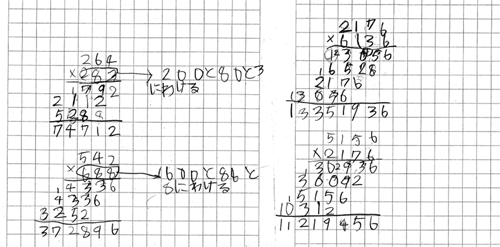 264
×283 200と80と3
にわける
792
2112
528
74712
542
×688 600と80と
8にわける
4336
4336
3252
372896
2176
×6136
13056
6528
2176
13056
13351936
5156
×2176
30936
36092
5156
10312
11219456